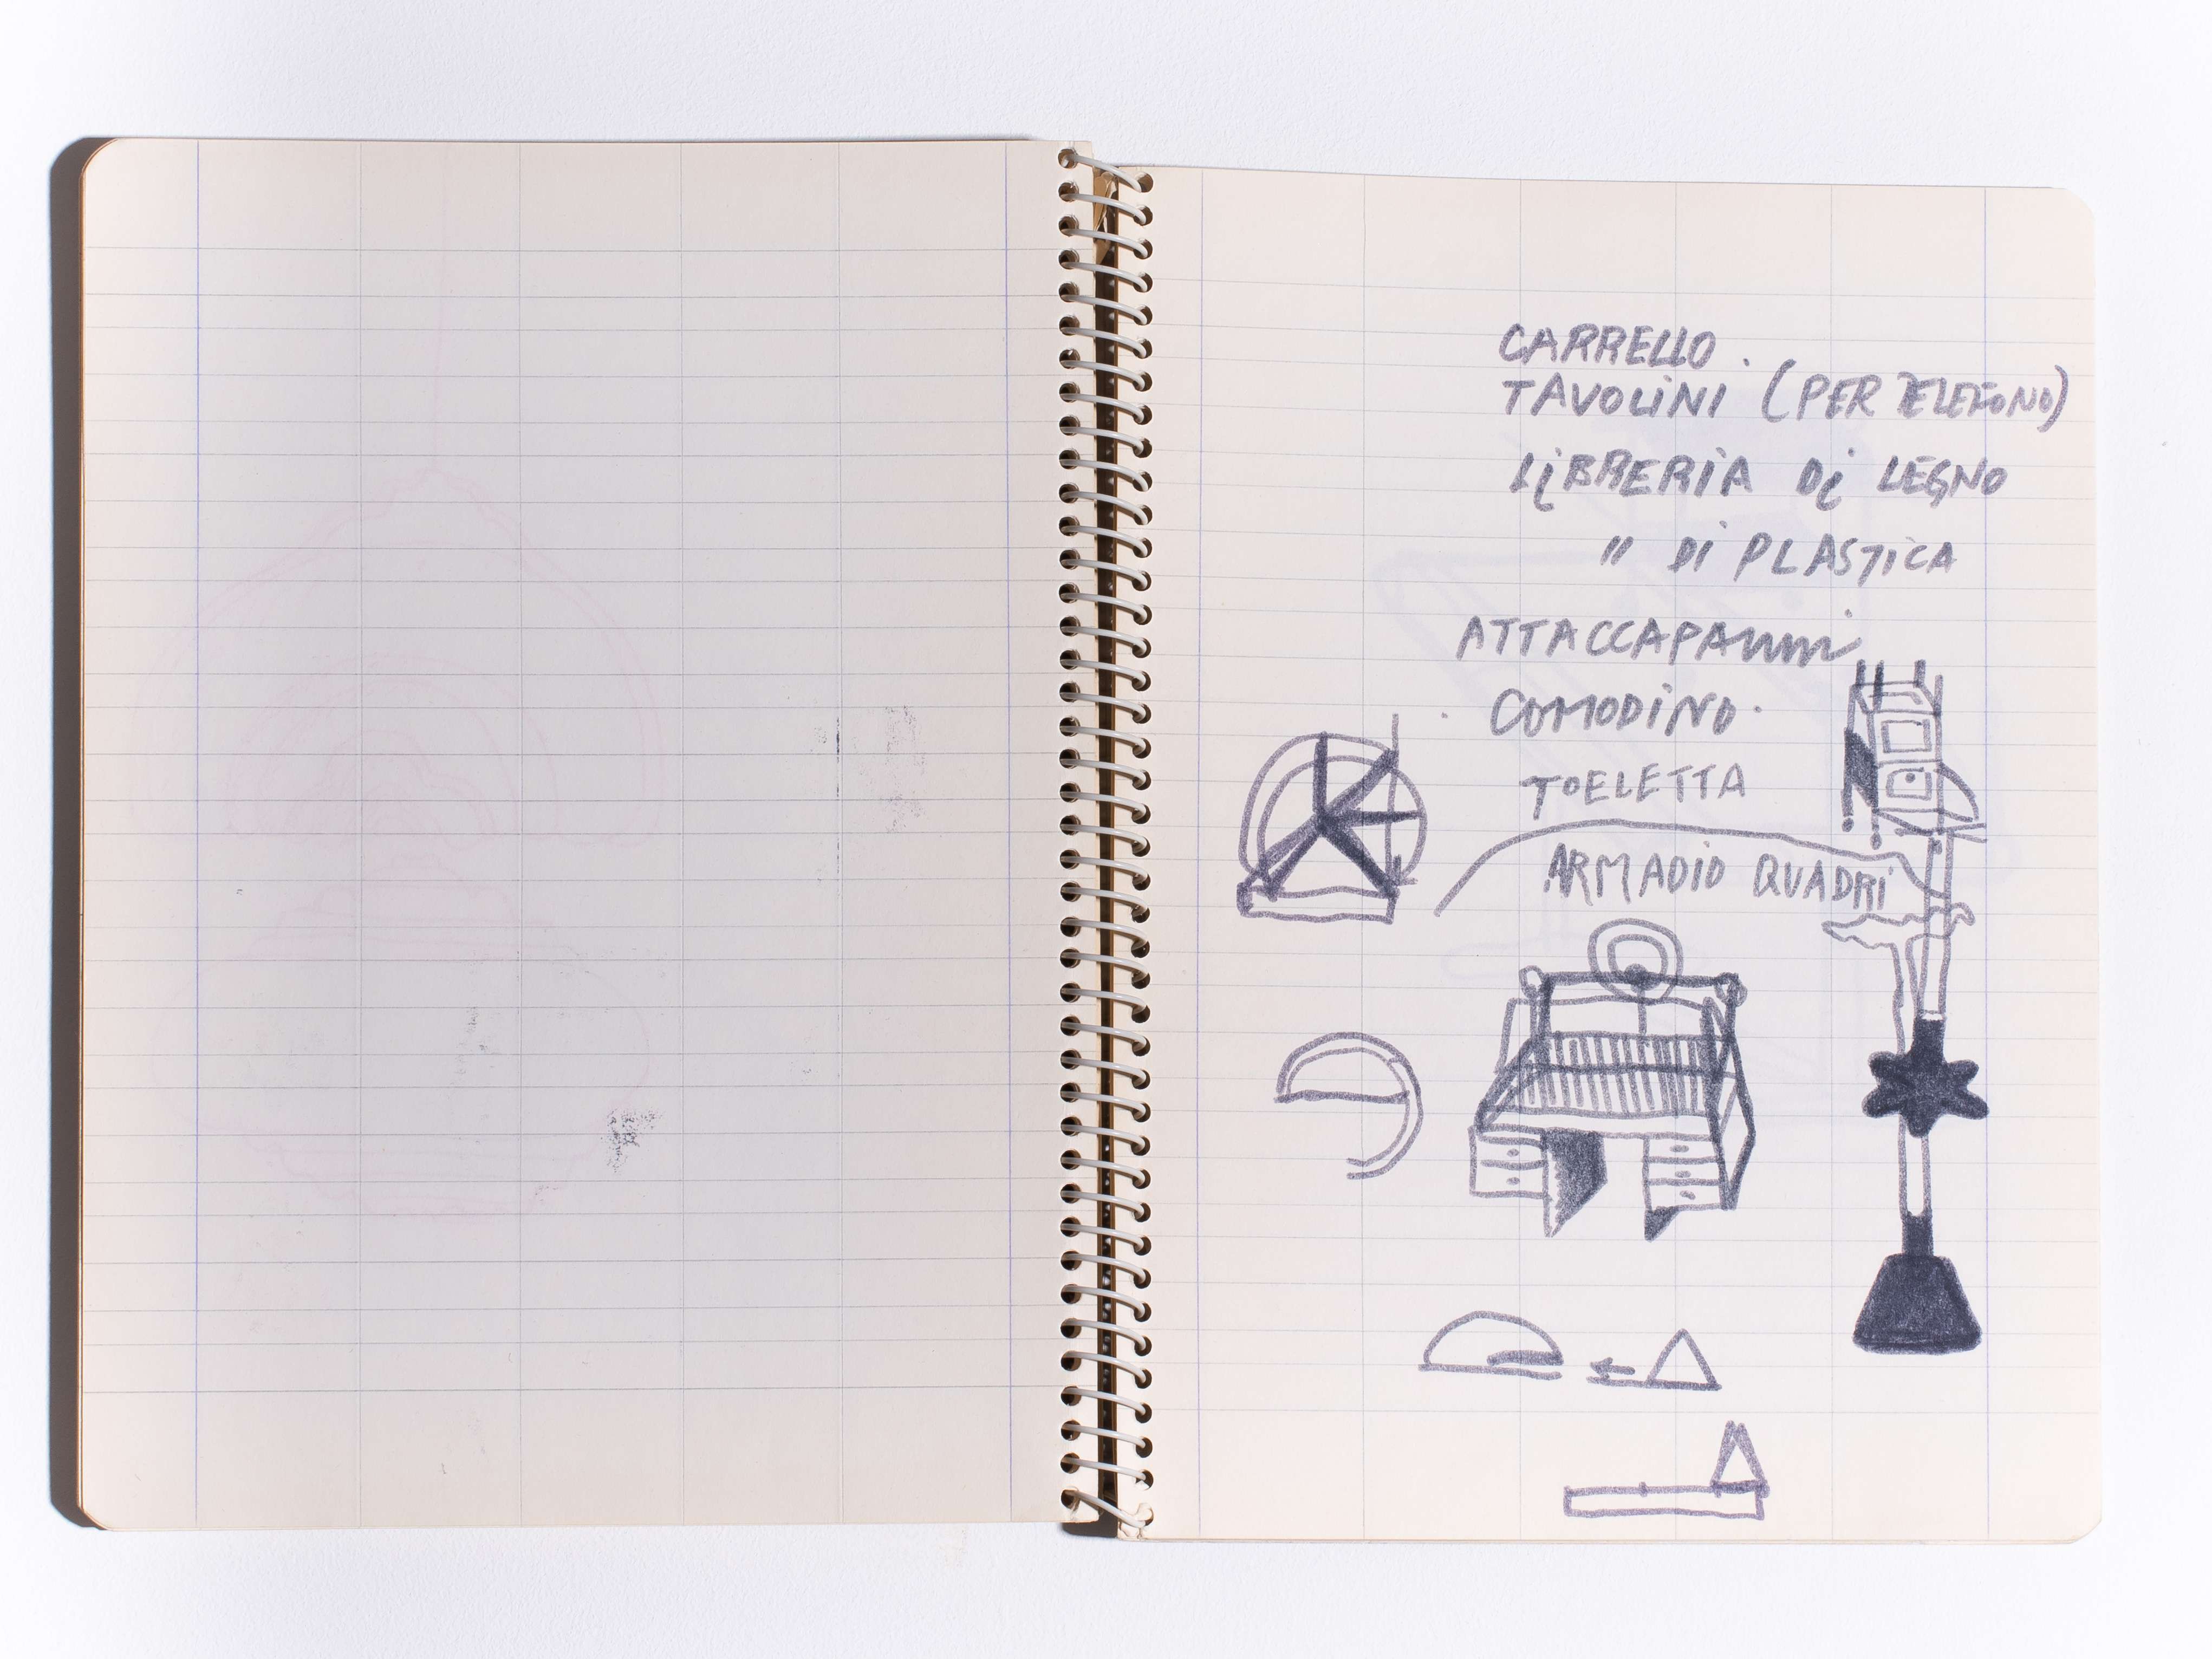 CARRELLO.
TAVOLiNi (PER TELEFONO)
LiBRERiA Di LEGNO
" Di PLASTiCA
ATTACCAPAnni
COMODiNO.
ToELETTA
ARMADiO QUADRi